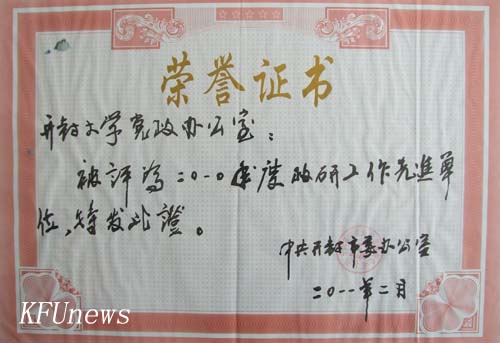 荣誉证书
开封大学党政办公室：
被評為二〇一〇年度政研工作先進單
位，特发此證。
中共开封市委办公室
二〇一一年二月
KFUnews